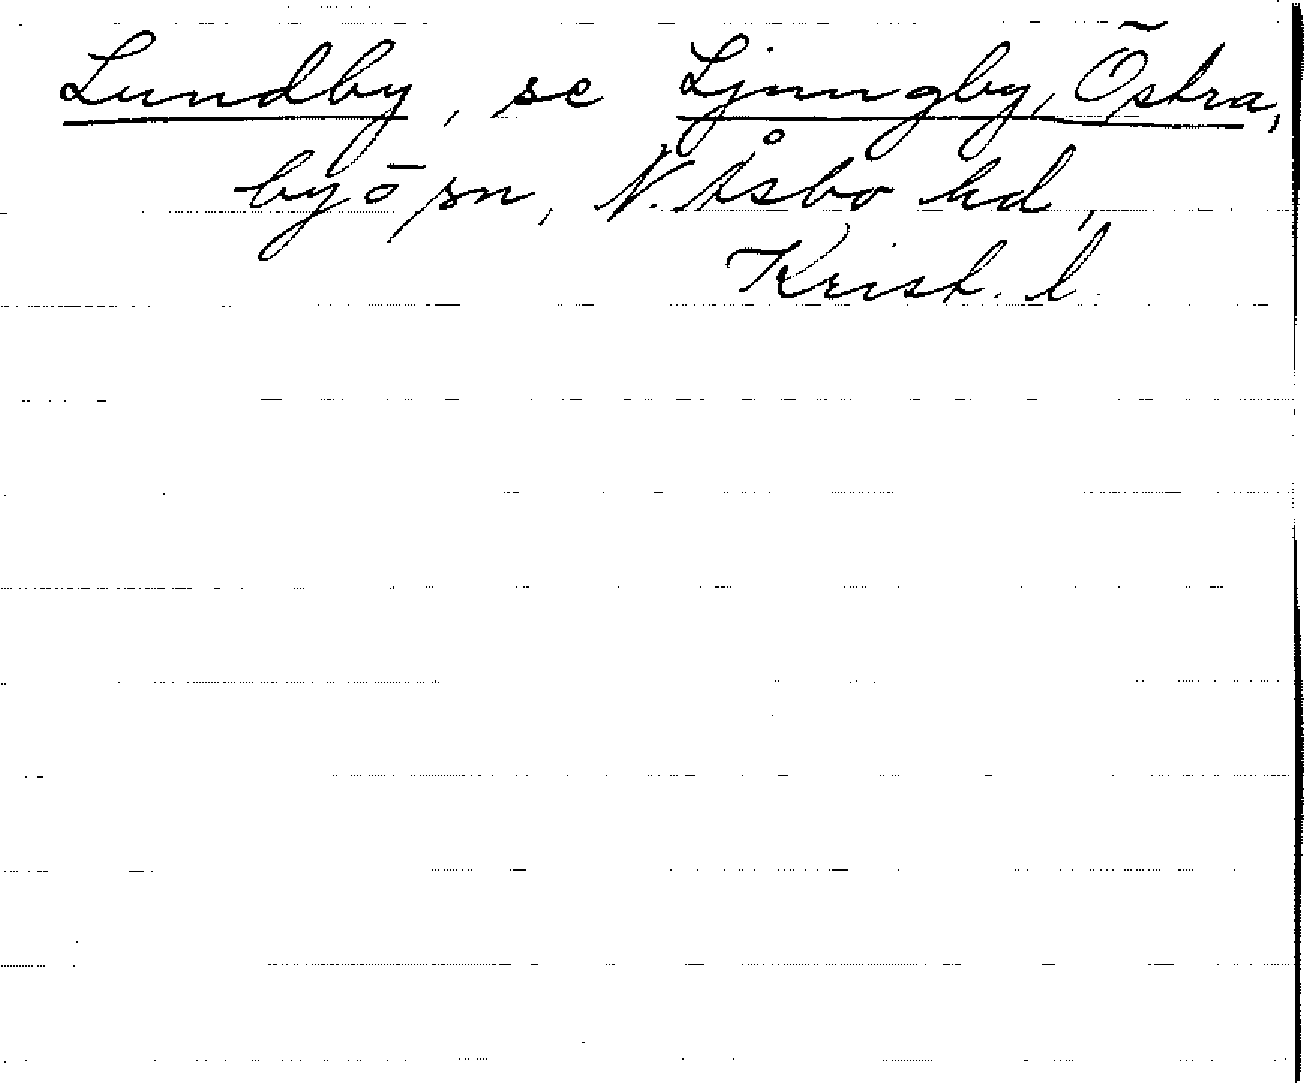 Lundby, se Ljungby, Östra,
by ō sn, N. Åsbo hd,
Krist. l.